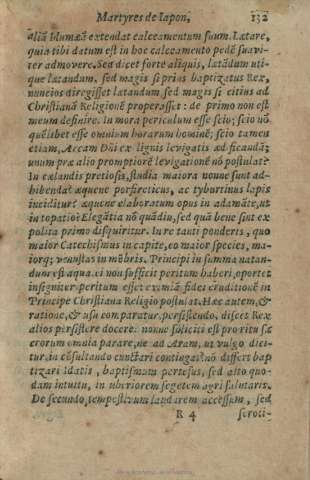 Martyres de Iapon, 132
aliã Idumæã extendat calceamentum suum. Lætare,
quia tibi datum est in hoc calceamento pedẽ suavi-
ter admovere. Sed dicet forte aliquis, latãdum uti-
que lætandum, sed magis si prius baptizatus Rex,
nuncios direxisset lætandum sed magis si citius ad
Christianã Religionẽ properasset: de primo non est
meum definire. In mora periculum esse scio; scio nõ
quẽlibet esse omnium horarum hominẽ; scio tamen
etiam, Arcam Dñi ex lignis levigatis ædificandã;
unum præ alio promptiorẽ levigationẽ nõ postulat?
In cælandis pretiosis, studia maiora nonne sunt ad-
hibenda? æquene porfireticus, ac tyburtinus lapis
inciditur? æquene elaboratum opus in adamãte, ut
in topatio? Elegãtia nõ quãdiu, sed quã bene sint ex
polita primo disquiritur. In re tanti ponderis, quo
maior Catechismus in capite, eo maior species, ma-
iorq; venustas in mẽbris. Principi in summa natan-
dum est aqua. ei non sufficit peritum haberi, oportet
insigniter peritum esse: eximiã fidei eruditionẽ in
Principe Christiana Religio postulat. Hæc autem, &
ratione, & usu comparatur. persistendo, discet Rex
alios persistere docere. nonne soliciti est pro ritu sa
crorum omnia parare, ne ad Aram, ut vulgo dici-
tur, in cõsultando cunctari contingat? nõ differt bap
tizari Idatis, baptismum pertæsus, sed alto quo-
dam intuitu, in uberiorem segetem agri salutaris.
De secundo, tempestivum laudarem accessum, sed
R 4 seroti-